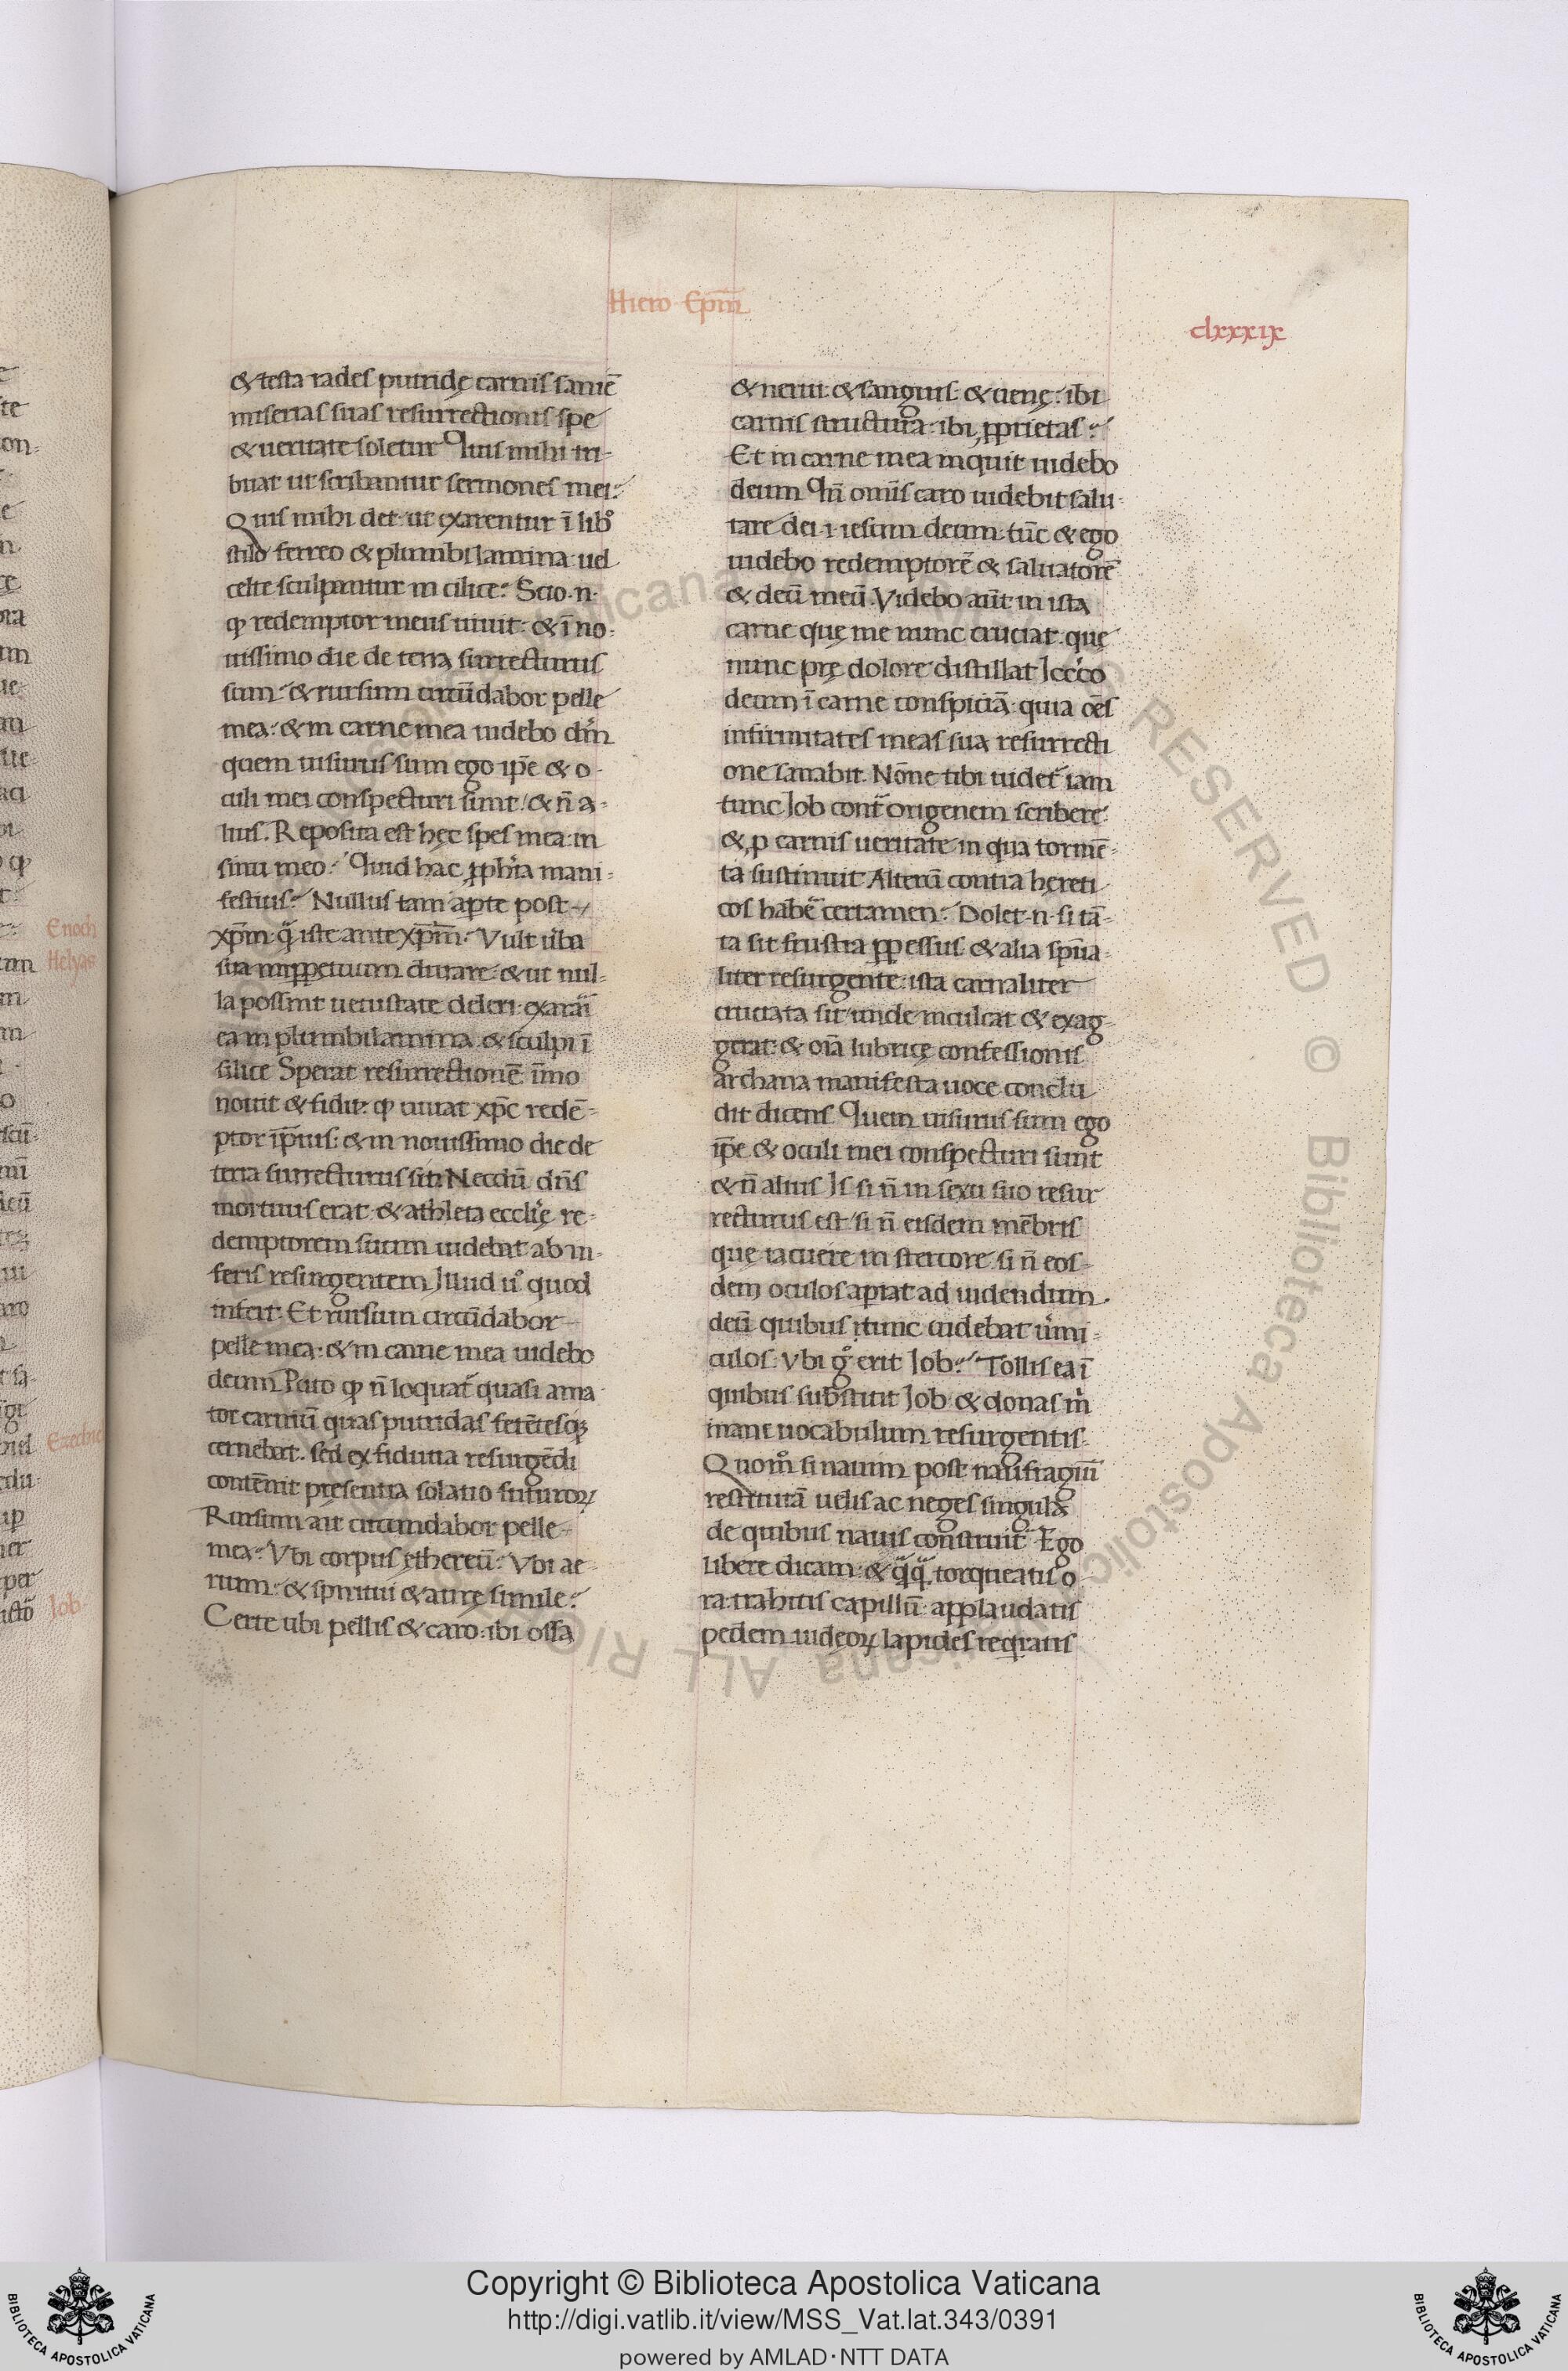 Hiero Ep̅m̅
clxxxix
& testa rades putridę carnis sanie̅
miserias suas resurrectionis spe
& ueritate soletur Quis mihi tri-
buat ut scribantur sermones mei?
Quis mihi det ut exarentur i̅ libº
stilo ferreo & plumbi lamina uel
celte sculpantur in cilice? Scio .n.
qp redemptor meus uiuit: & i̅ no-
uissimo die de terra surrecturus
sum & rursum circu̅dabor pelle
mea: & in carne mea uidebo dm̅
quem uisurus sum ego ip̅e & o-
culi mei conspecturi sunt & n̅ a-
lius. Reposita est hęc spes mea in
sinu meo. Quid hac ꝓph̅ia mani-
festius? Nullus tam apte post
xp̅m q̅ iste ante xp̅m. Vult u̅ba
sua inꝑpetuum durare & ut nul-
la possint uetustate deleri exarai̅
ea in plumbi lamina & sculpi i̅
silice Sperat resurrectione̅ i̅mo
nouit & uidit qp uiuat xp̅c rede̅-
ptor ip̅ius: & in nouissimo die de
terra surrecturus sit Necdu̅ dn̅s
mortuus erat & athleta ecclię re-
demptorem suum uidebat ab in-
feris resurgentem Illud uº quod
infert Et rursum circu̅dabor
pelle mea: & in carne mea uidebo
deum Puto qp n̅ loquat̅ quasi ama
tor carniu̅ quas putridas fete̅tesqꝫ
cernebat. sed ex fiducia resurge̅di
conte̅nit presentia solatio futuroꝝ
Rursum ait circumdabor pelle
mea. Vbi corpus ęthereu̅? Vbi ae-
rium & spiritui & aurę simile?
Certe ubi pellis & caro: ibi ossa
& nerui & sanguis & uenę: ibi
carnis structura ibi ꝓprietas.
Et in carne mea inquit uidebo
deum Qn̅ omi̅s caro uidebit salu-
tare dei .i. iesum deum tu̅c & ego
uidebo redemptore̅ & saluatore̅
& deu̅ meu̅. Videbo aut̅ in ista
carne quę me nunc cruciat quę
nunc prę dolore distillat Iccͦco
deum i̅ carne conspicia̅ quia oe̅s
infirmitates meas sua resurrecti
one sanabit. No̅ne tibi uidet̅ iam
tunc Job cont̅ origenem scribere
& ꝓ carnis ueritate in qua torme̅-
ta sustinuit Alteru̅ contra hęreti
cos habe̅ certamen? Dolet .n. si ta̅-
ta sit frustra ꝑpessus & alia sp̅ua-
liter resurgente ista carnaliter
cruciata sit unde inculcat & exag-
gerat & oi̅a lubricę confessionis
archana manifesta uoce conclu
dit dicens Quem uisurus sum ego
ip̅e & oculi mei conspecturi sunt
& n̅ alius Is si n̅ in sexu suo resur
recturus est si n̅ eisdem me̅bris
quę iacuere in stercore si n̅ eos-
dem oculos aptat ad uidendum
deu̅ quibus tunc uidebat u̅mi-
culos. Vbi gͦ erit Job? Tollis ea i̅
quibus subsituit Job & donas m̅
inane uocabulum resurgentis
Quomͦ si nauim post naufragiu̅
restituta̅ uelis ac neges singula
de quibus nauis construit̅ Ego
libere dicam & q̅q̅ torqueatis o-
ra trahitis capillu̅ applaudatis
pedem iudeoꝝ lapides req̅ratis
Enoch
Helyas
Job
Copyright © Biblioteca Apostolica Vaticana
http://digi.vatlib.it/view/MSS_Vat.lat.343/0391
powered by AMLAD·NTT DATA
BIBLIOTECA APOSTOLICA VATICANA
BIBLIOTECA APOSTOLICA VATICANA